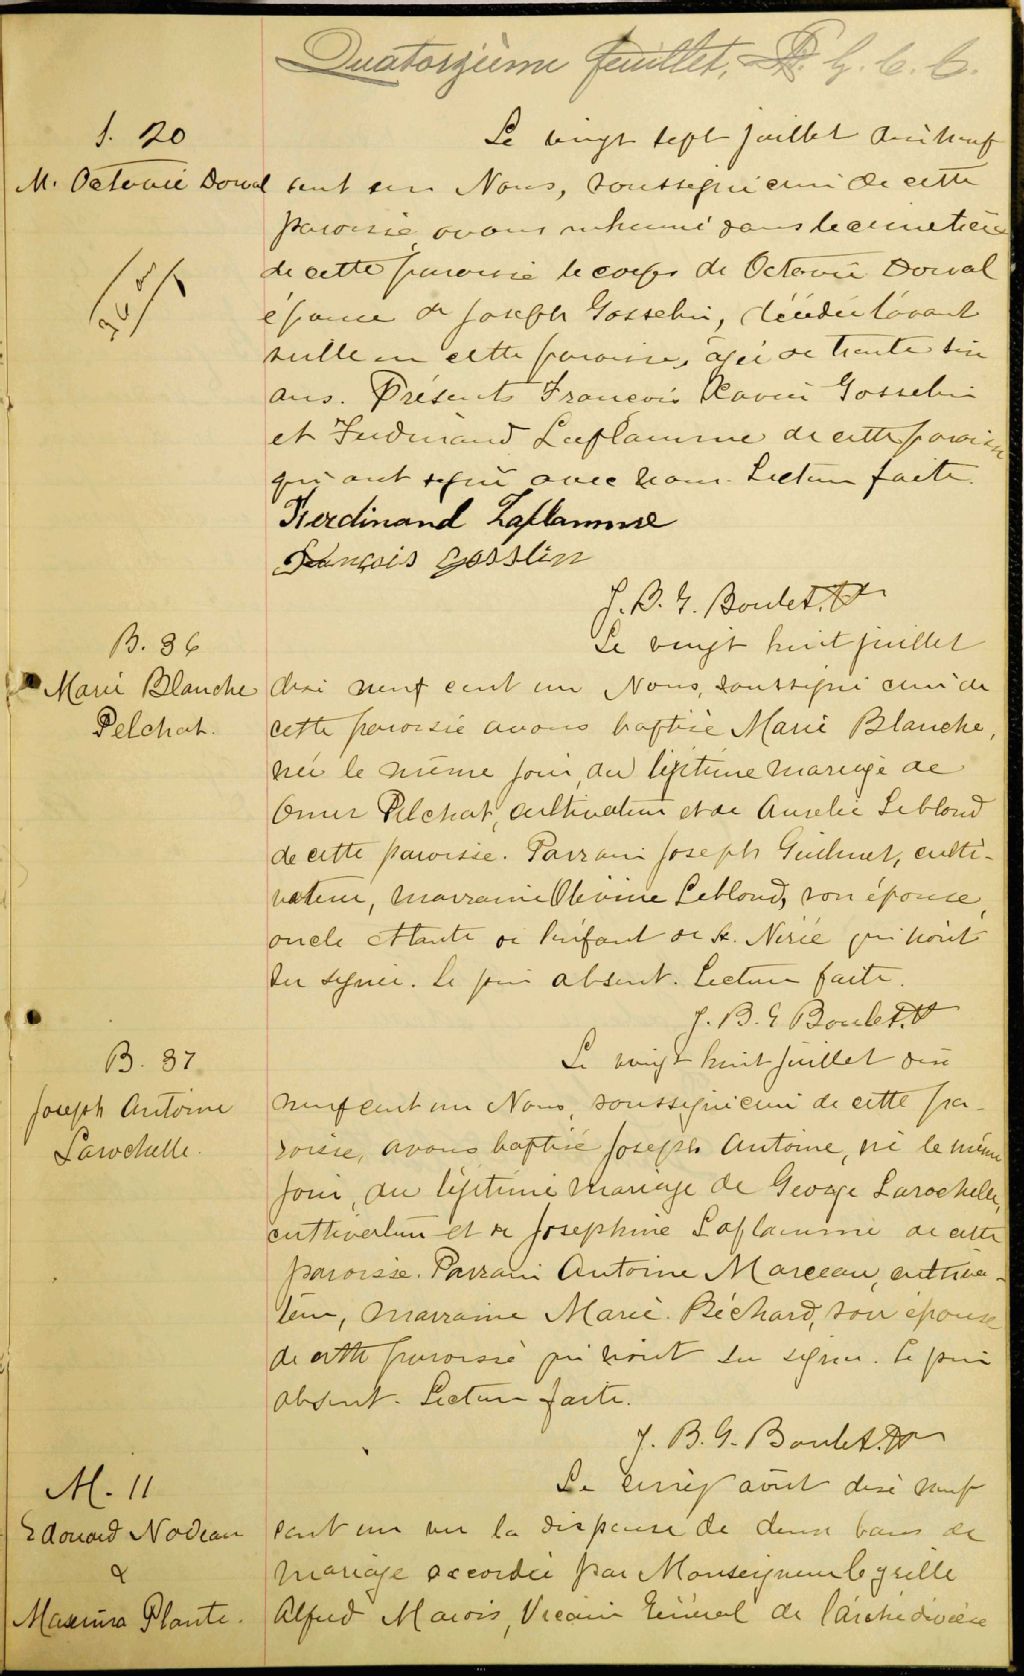 Quatorzième feuillet, P. G. C. C.
S. 20
M. Octavie Dorval
36 ans
Le vingt sept juillet dix neuf
cent un Nous, soussigné curé de cette
paroisse, avons inhumé dans le cimetière
de cette paroisse le corps de Octavie Dorval
épouse de Joseph Gosselin, décédée l'avant
veille en cette paroisse, âgée de trente six
ans. Présents François Xavier Gosselin
et Ferdinand Laflamme de cette paroisse
qui ont signé avec nous. Lecture faite.
Ferdinand Laflamme
François Gosslin
J. B. G. Boulet. Ptre
B. 36
Marie Blanche
Pelchat.
Le vingt huit juillet
dix neuf cent un Nous, soussigné curé de
cette paroisse avons baptisé Marie Blanche,
née le même jour, du légitime mariage de
Omer Pelchat, cultivateur et de Aurelie Leblond
de cette paroisse. Parrain Joseph Guilmet, culti-
vateur, marraine Olevine Leblond, son épouse,
oncle et tante de l'enfant de St. Nérée qui n'ont
su signer. Le père absent. Lecture faite.
J. B. G Boulet. Ptr
B. 37
Joseph Antoine
Larochelle.
Le vingt huit juillet dix
neuf cent un Nous, soussigné curé de cette pa-
roisse, avons baptisé Joseph Antoine, né le même
jour, du légitime mariage de George Larochelle,
cultivateur et de Josephine Laflamme de cette
paroisse. Parrain Antoine Marceau, cultiva-
teur, marraine Marie Béchard, son épouse
de cette paroisse qui n'ont su signer. Le père
absent. Lecture faite.
J. B. G. Boulet. Ptr
M. 11
Edouard Nadeau
&
Maxima Plante.
Le cinq août dix neuf
cent un vu la dispense de deux bans de
mariage accordée par Monseigneur
Alfred Marois, Vicaire Général de l'archidiocèse